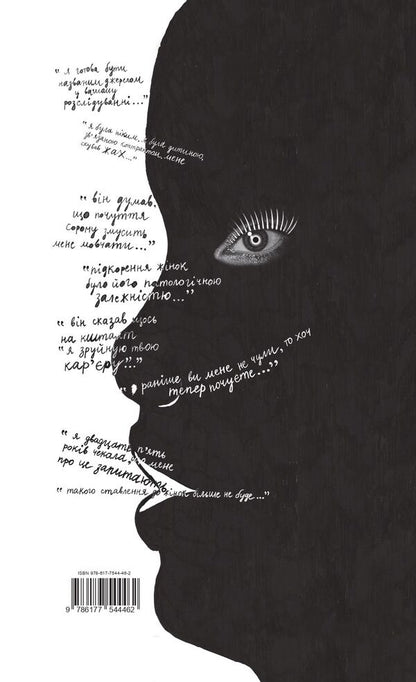 “я готова бути
названим джерелом
у вашому
розслідуванні...”
“я була ніким, я була дитиною,
зв'язаною контрактом, мене
скував жах...”
“він думав,
що почуття
сорому змусить
мене мовчати...”
“підкорення жінок
було його патологічною
залежністю...”
“він сказав щось
на кшталт
“я зруйную твою
кар'єру”...”
“раніше ви мене не чули, то хоч
тепер почуєте...”
“я двадцять п'ять
років чекала, що мене
про це запитають”
“такого ставлення до жінок більше не буде...”
ISBN 978-617-7544-46-2
9 786177 544462